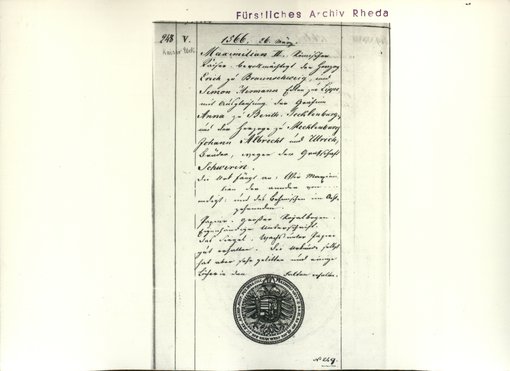 Fürstliches Archiv Rheda
248 V. 1566. 26. März.
Maximilian II. Römischer
Kaiser bevollmächtigt den Herzog
Erich zu Braunschweig, und
Simon Hermann zur Lippe
mit Ausgleichung der Gräfin
Anna zu Benth. Tecklenburg,
und den Herzoge zu Mecklenburg
Johann Albrecht und Ulrich,
Brüder, wegen der Grafschaft
Schwerin.
Die fängt an: Wir Maximi
lian der ander von
und das
Papier. Großer Royalbogen.
Eigenhändige Unterschrift.
Das Siegel. Wachs unter Papier
gut erhalten. Die Urkunde selbst
hat aber sehr gelitten und einige
Löcher in den Falten erhalten.